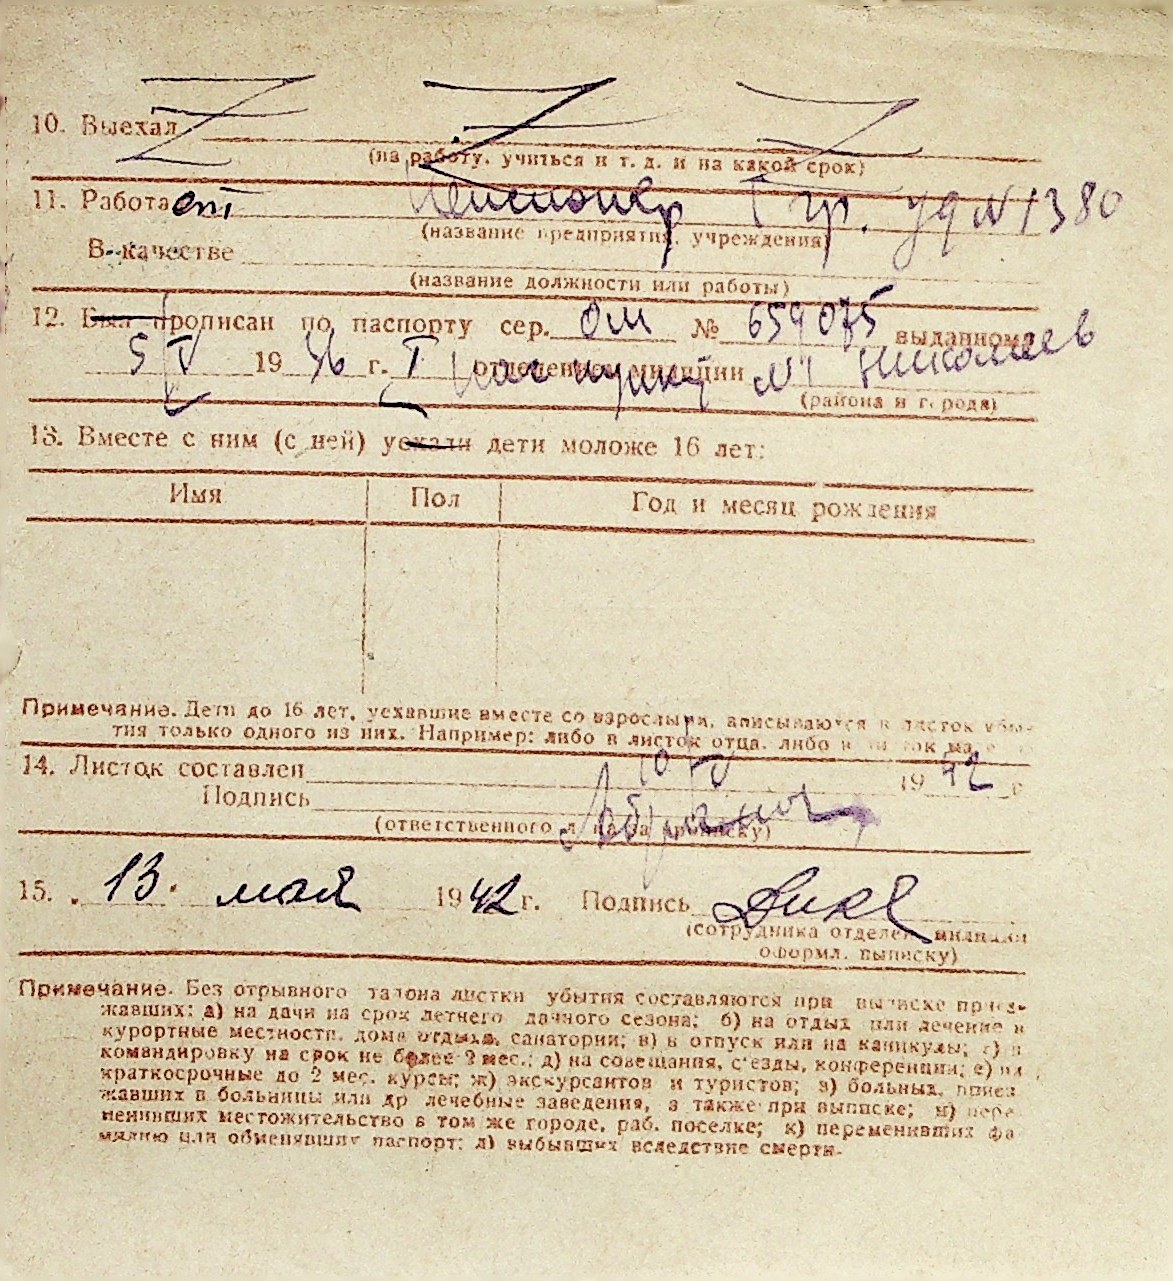 10. Выехал Z Z Z
(на работу, учиться и т. д. и на какой срок)
11. Работает Пенсионер I гр. уд № 1380
(название предприятия, учреждения)
В качестве
(название должности или работы)
12. Был прописан по паспорту сер. ОМ № 659075 выданному
5/V 1936 г. I отделением милиции №1 Николаев
(района и города)
13. Вместе с ним (с ней) уехали дети моложе 16 лет:
Имя Пол Год и месяц рождения
Примечание. Дети до 16 лет, уехавшие вместе со взрослыми, вписываются в листок убы-
тия только одного из них. Например: либо в листок отца, либо в листок
14. Листок составлен 10/V 1942 г
Подпись
(ответственного за прописку)
15. 13. мая 1942 г. Подпись
(сотрудника отделен. милиции
оформл. выписку)
Примечание. Без отрывного талона листки убытия составляются при выписке приез-
жавших: а) на дачи на срок летнего дачного сезона; б) на отдых или лечение в
курортные местности, дома отдыха, санатории; в) в отпуск или на каникулы; г) в
командировку на срок не более 2 мес.; д) на совещания, с'езды, конференции; е) на
краткосрочные до 2 мес. курсы; ж) экскурсантов и туристов; з) больных, приез
жавших в больницы или др лечебные заведения, а также при выписке; и) пере
менивших местожительство в том же городе, раб. поселке; к) переменивших фа
милию или обменявших паспорт; л) выбывших вследствие смерти.